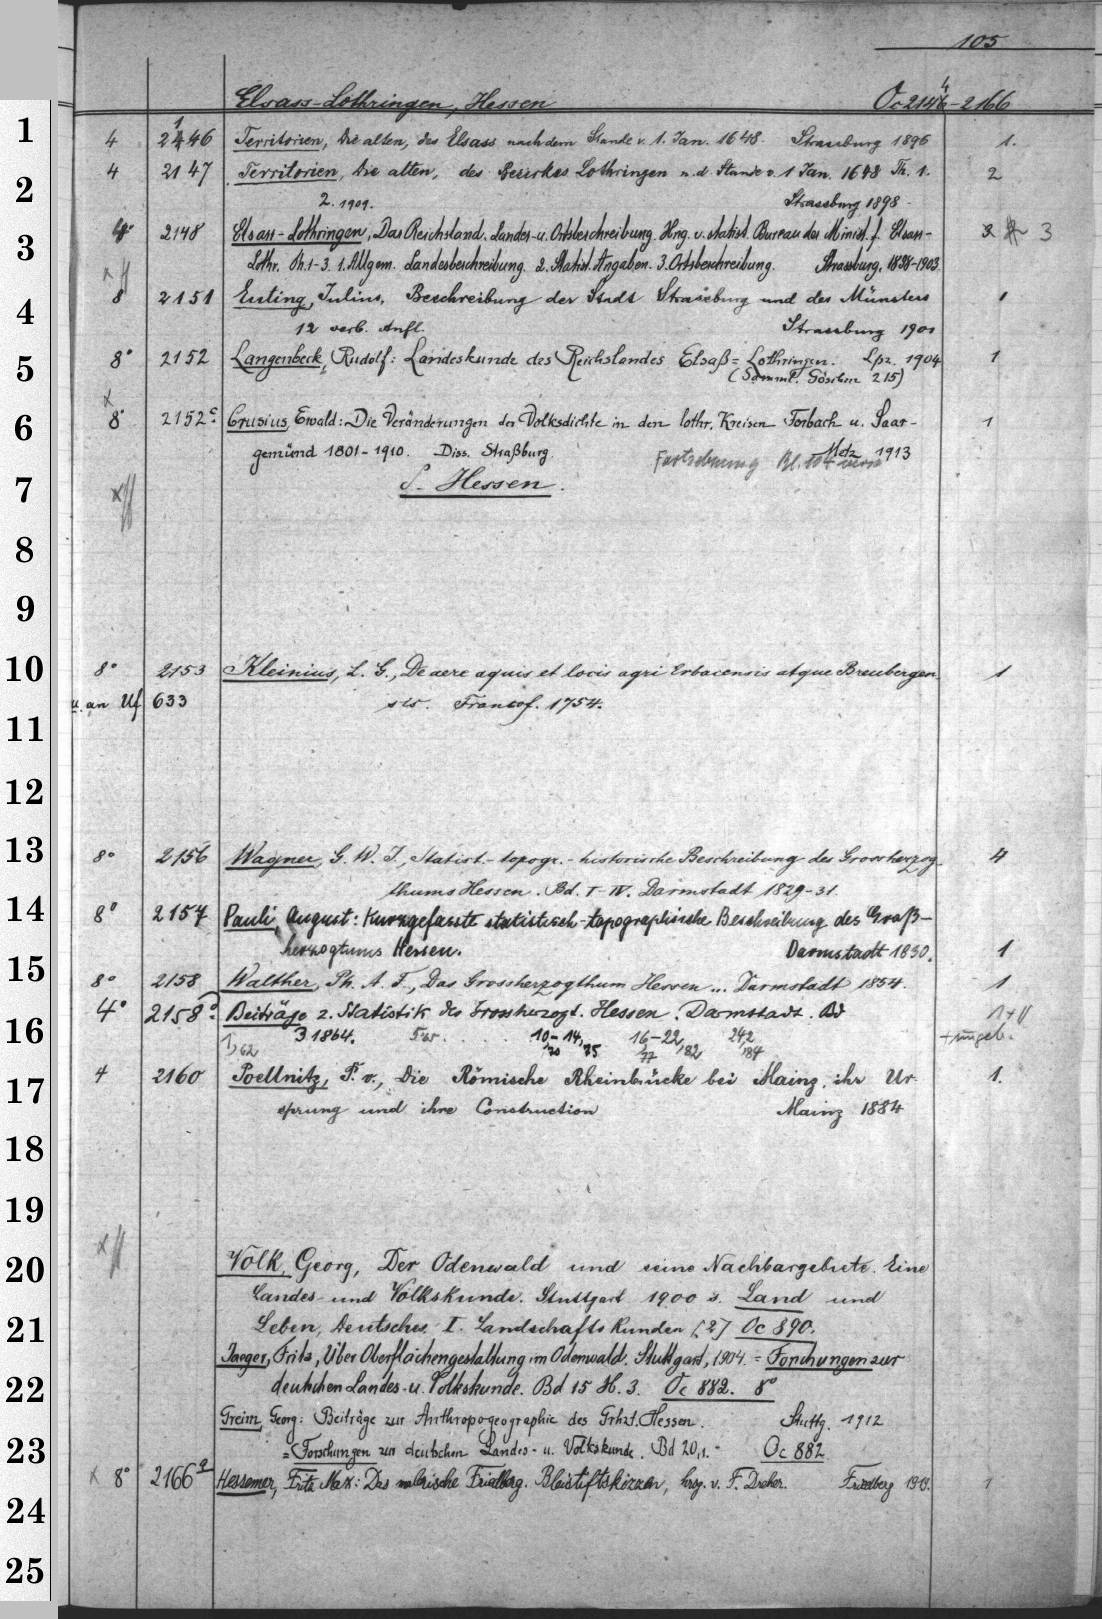 105
Elsass-Lothringen, Hessen Oc 2146-2166
1 4 2146 Territorien, Die alten, des Elsass nach dem Stande v. 1. Jan. 1648. Strassburg 1896 1.
2 4 2147 Territorien, Die alten, des Bezirkes Lothringen n. d. Stande v. 1 Jan. 1648 Th. 1. 2
2. 1909. Strassburg 1898.
3 4° 2148 Elsass-Lothringen, Das Reichsland. Landes- u. Ortsbeschreibung. Hrg. v. statist. Bureau des Minist. f. Elsass- 3
Lothr. Th. 1-3. 1. Allgem. Landesbeschreibung. 2. Statist. Angaben. 3. Ortsbeschreibung. Strassburg, 1898-1903.
4 8 2151 Euting, Julius, Beschreibung der Stadt Strassburg und des Münsters 1
12 verb. Aufl. Strassburg 1901
5 8° 2152 Langenbeck, Rudolf: Landeskunde des Reichslandes Elsaß=Lothringen. Lpz. 1904 1
(Samml. Göschen 215)
x
6 8° 2152c. Crusius, Ewald: Die Veränderungen der Volksdichte in den lothr. Kreisen Forbach u. Saar- 1
gemünd 1801-1910. Diss. Straßburg. Metz 1913
Fortsetzung Bl. 104
7 S. Hessen.
8
9
10 8° 2153 Kleinius, L. G., De aere aquis et locis agri Erbacensis atque Breubergen- 1
u. an Uf 633 sis. Francof. 1754.
11
12
13 8° 2156 Wagner, G. W. J., Statist.-topogr.-historische Beschreibung des Grossherzog- 4
thums Hessen. Bd. I-IV. Darmstadt 1829-31.
14 8° 2157 Pauli, August: Kurzgefasste statistisch-topographische Beschreibung des Groß-
herzogtums Hessen. Darmstadt 1830. 1
15 8° 2158 Walther, Ph. A. F., Das Grossherzogthum Hessen ... Darmstadt 1854. 1
4° 2158a. Beiträge z. Statistik des Grossherzogt. Hessen. Darmstadt. Bd 1+11
16 1,62 3 1864. 5 65. . . . . 10-14, 16-22, 24,2 + ungeb.
70 75 77 82 84
17 4 2160 Poellnitz, F. v., Die Römische Rheinbrücke bei Mainz, ihr Ur- 1.
sprung und ihre Construction Mainz 1884
18
19
20 Volk, Georg, Der Odenwald und seine Nachbargebiete. Eine
Landes- und Volkskunde. Stuttgart 1900 s. Land und
21 Leben, Deutsches I. Landschafts Kunden [2] Oc 890.
Jaeger, Fritz, Über Oberflächengestaltung im Odenwald. Stuttgart, 1904. = Forschungen zur
22 deutschen Landes- u. Volkskunde. Bd 15 H. 3. Oc 882. 8°
Greim, Georg: Beiträge zur Anthropogeographie des Grhzt. Hessen. Stuttg. 1912
23 =(Forschungen zur deutschen Landes- u. Volkskunde. Bd 20,1. Oc 882
x 8° 2166a Hessemer, Fritz Max: Das malerische Friedberg. Bleistiftskizzen, hrsg. v. F. Dreher. Friedberg 1
24
25